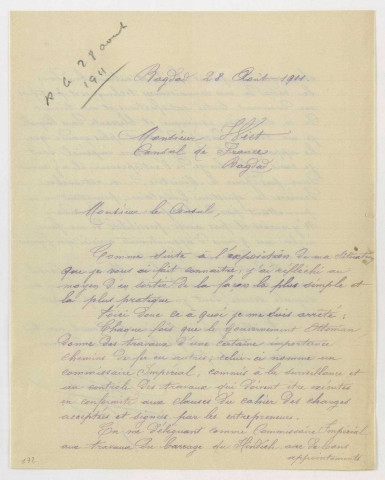 R. G 28 août
1911
Bagdad 28 Août 1911
Monsieur Wiet
Consul de France
Bagdad.
Monsieur le Consul,
Comme suite à l'exposition de ma situation
que je vous ai fait connaître, j'ai réfléchi au
moyen d'en sortir de la façon la plus simple et
la plus pratique
Voici donc ce à quoi je me suis arrêté :
Chaque fois que le Gouvernement Ottoman
donne des travaux d'une certaine importance
chemins de fer en autres, celui-ci nomme un
commissaire Impérial, commis à la surveillance et
au contrôle des travaux qui doivent être exécutés
en conformité aux clauses du cahier des charges
acceptées et signées par les entrepreneurs.
En me déléguant comme Commissaire Impérial
aux travaux du barrage du Hindieh avec de bons
appointements
172